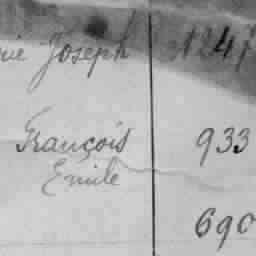 rie Joseph 1247
François 933
Emile
690